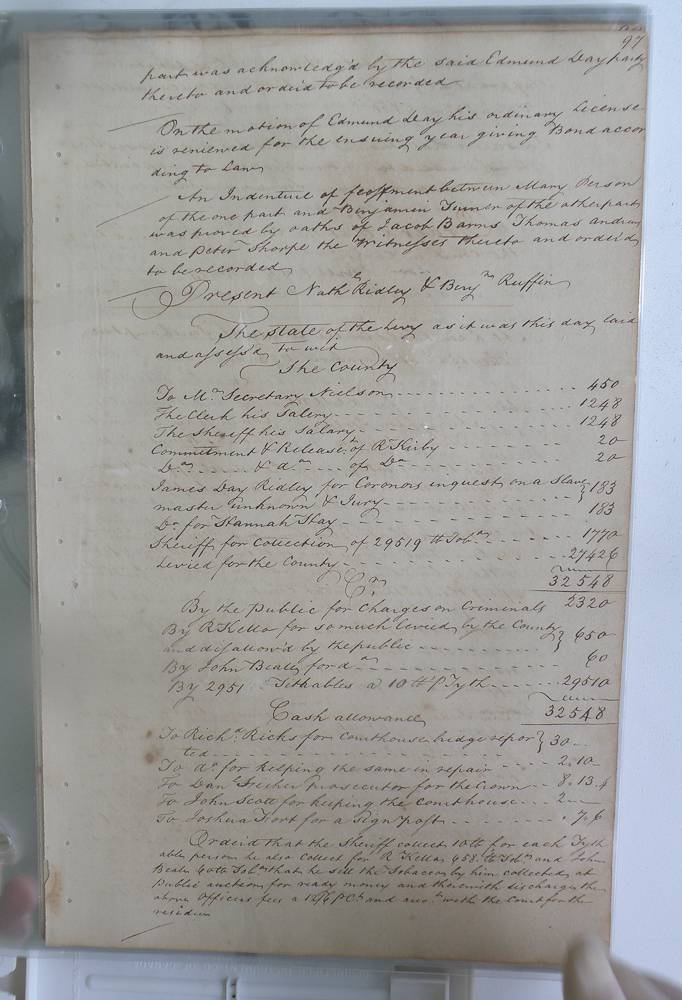 97
part was acknowledg'd by the said Edmund Day party
thereto and ordeid to be recorded
On the motion of Edmund Day his ordinary License
is reniewed for the ensuing year giving Bond accor
ding to Law
An Indenture of feoffment between Mary Person
of the one part and Benjamin Turner of the other part
was proved by oaths of Jacob Barns Thomas Andrews
and Peter Thorpe the Witnesses thereto and ordeid
to be recorded
Present Nathl Ridley & Benjn Ruffin
The state of the Levy as it was this day laid
and assess'd to wit
The County
To Mr Secretary Nielson 450
The Clerk his Salery 1248
The Sheriff his Salary 1248
Commitment & Releasemt of R Kirby 20
Do & do of Do 20
James Day Ridley for Coronors inquest on a Slave
master unknown & Jury } 183
Do for Hannah 183
Sheriff for Collection of 29519 lb Tobo 1770
Levied for the County 27426
32548
Cr
By the Public for Charges on Criminals 2320
By R Kello for so much levied by the County
and disallow'd by the public } 650
By John Beall for do 60
By 2951 Tithables a 10 lb P Tyth 29510
32548
Cash allowance
To Richd Ricks for Courthouse bridge repor } 30
ted
To do for keeping the same in repair 2.10
To Danl Fisher prosecutor for the Crown 8.13.4
To John Scott for keeping the Courthouse 2
To Joshua for a Sign post .7.6
Ordeid that the Sheriff collect 10 lb for each Tyth
able person he also Collect for R Kello 658 lb Tobo and John
Beale 60 lb Tobo that he sell the Tobaccos by him collected at
Public auction for ready money and therewith discharge the
above Officers fees a 12/6 P Ct and acco with the Court for the
residue